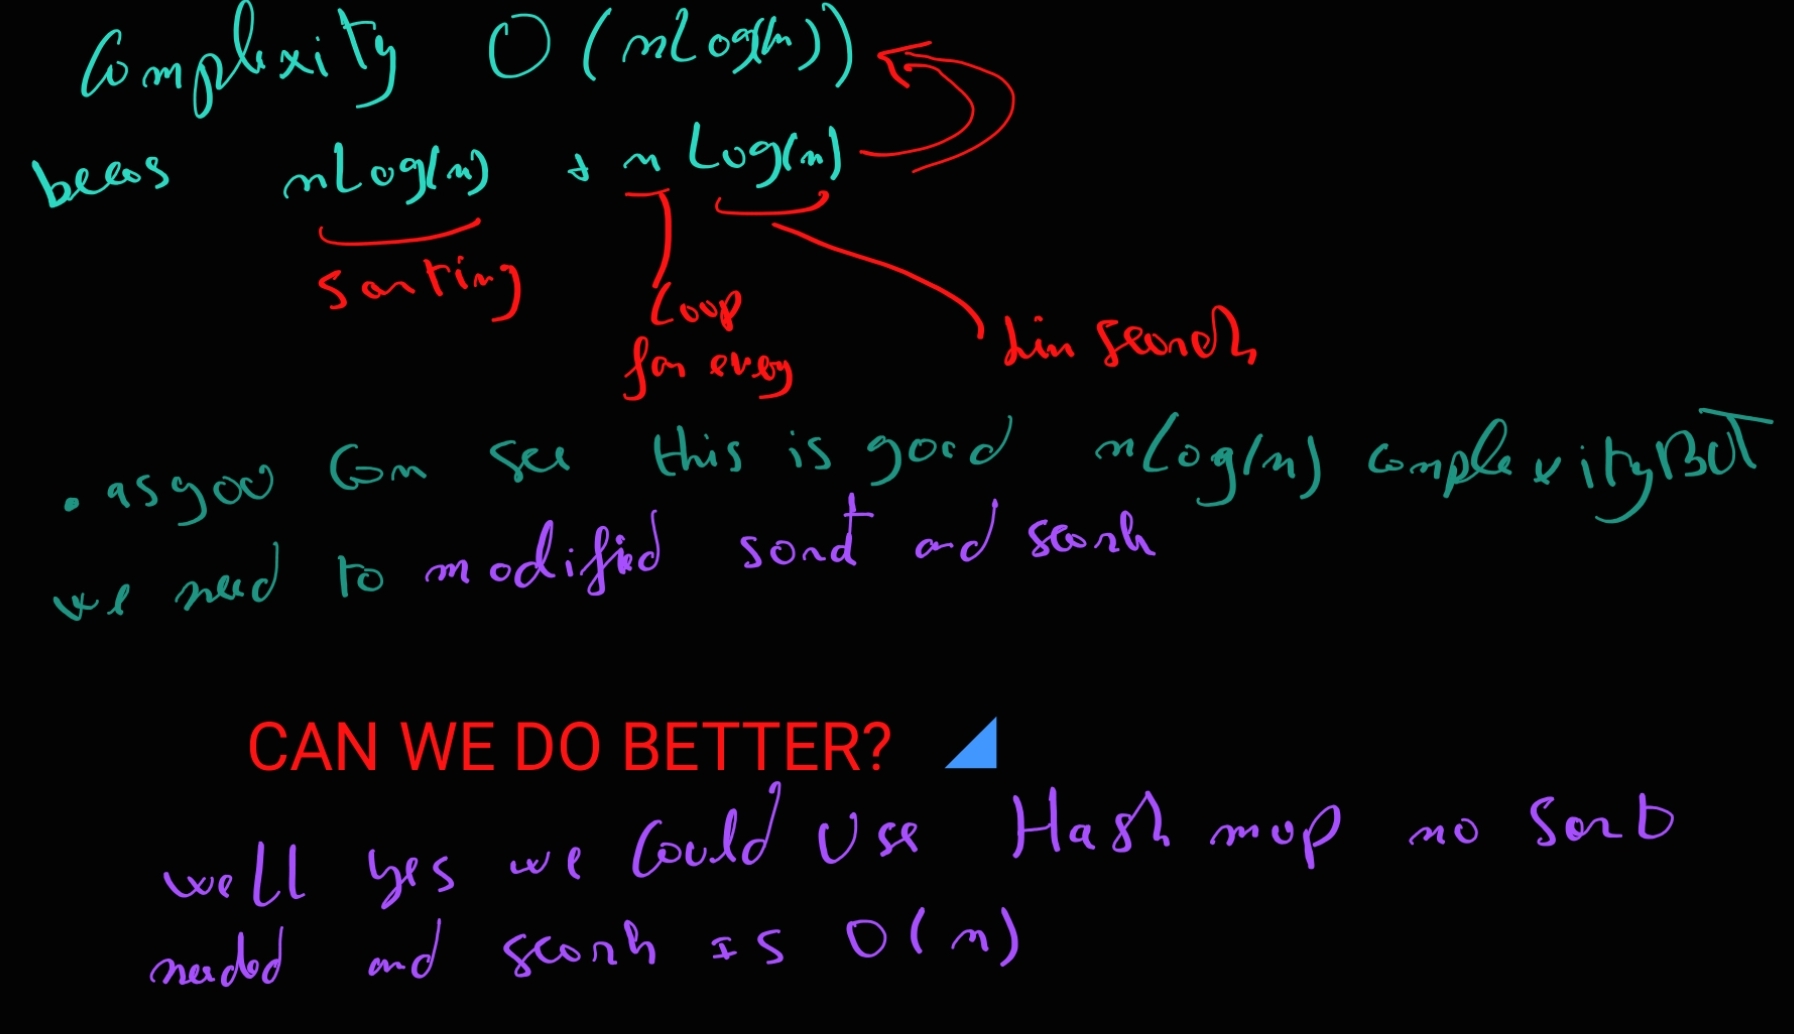 Complexity O(nLog(n))
becos nLog(n) + n Log(n)
Sorting
Loop
for every
bin search
. as you can see this is good nLog(n) complexity BUT
we need to modified sort and search
CAN WE DO BETTER?
well yes we Could Use Hash map no Sort
needed and search is O(n)